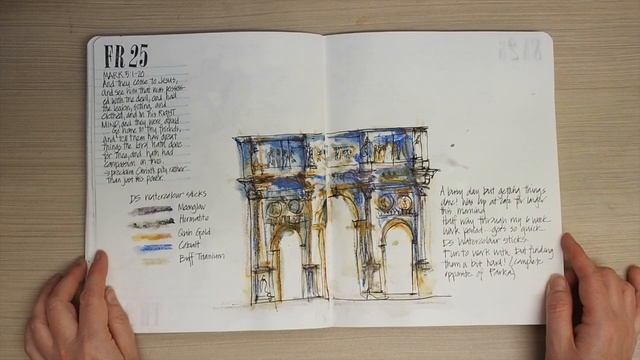 FR 25
MARK 5:1-20
And they come to Jesus,
and see him that was possess-
ed with the devil, and had
the legion, sitting, and
clothed, and in his RIGHT
MIND, and they were afraid
go home to thy friends,
and tell them how great
things the Lord hath done
for thee, and hath had
compassion on thee.
proclaim Christ's pity rather
than just his power.
DS watercolour sticks
Moonglow
Hematite
Quin Gold
Cobalt
Buff Titanium
A busy day but getting things
done!
this morning
half way through my 6 week
work period - gets so quick
DS Watercolour sticks
Fun to work with, but finding
them a bit hard! (complete
opposite of Parka)